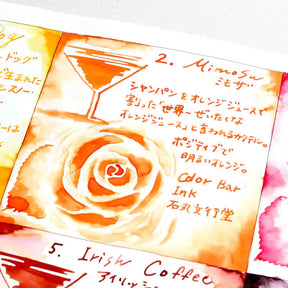 ドッグ
で生まれた
は
2. Mimosa
ミモザ
シャンパンをオレンジジュースで
割った「世界一ぜいたくな
オレンジジュース」と言われるカクテル。
ポジティブで
明るいオレンジ。
Color Bar
Ink
石丸文行堂
5. Irish Coffee
アイリッシュ